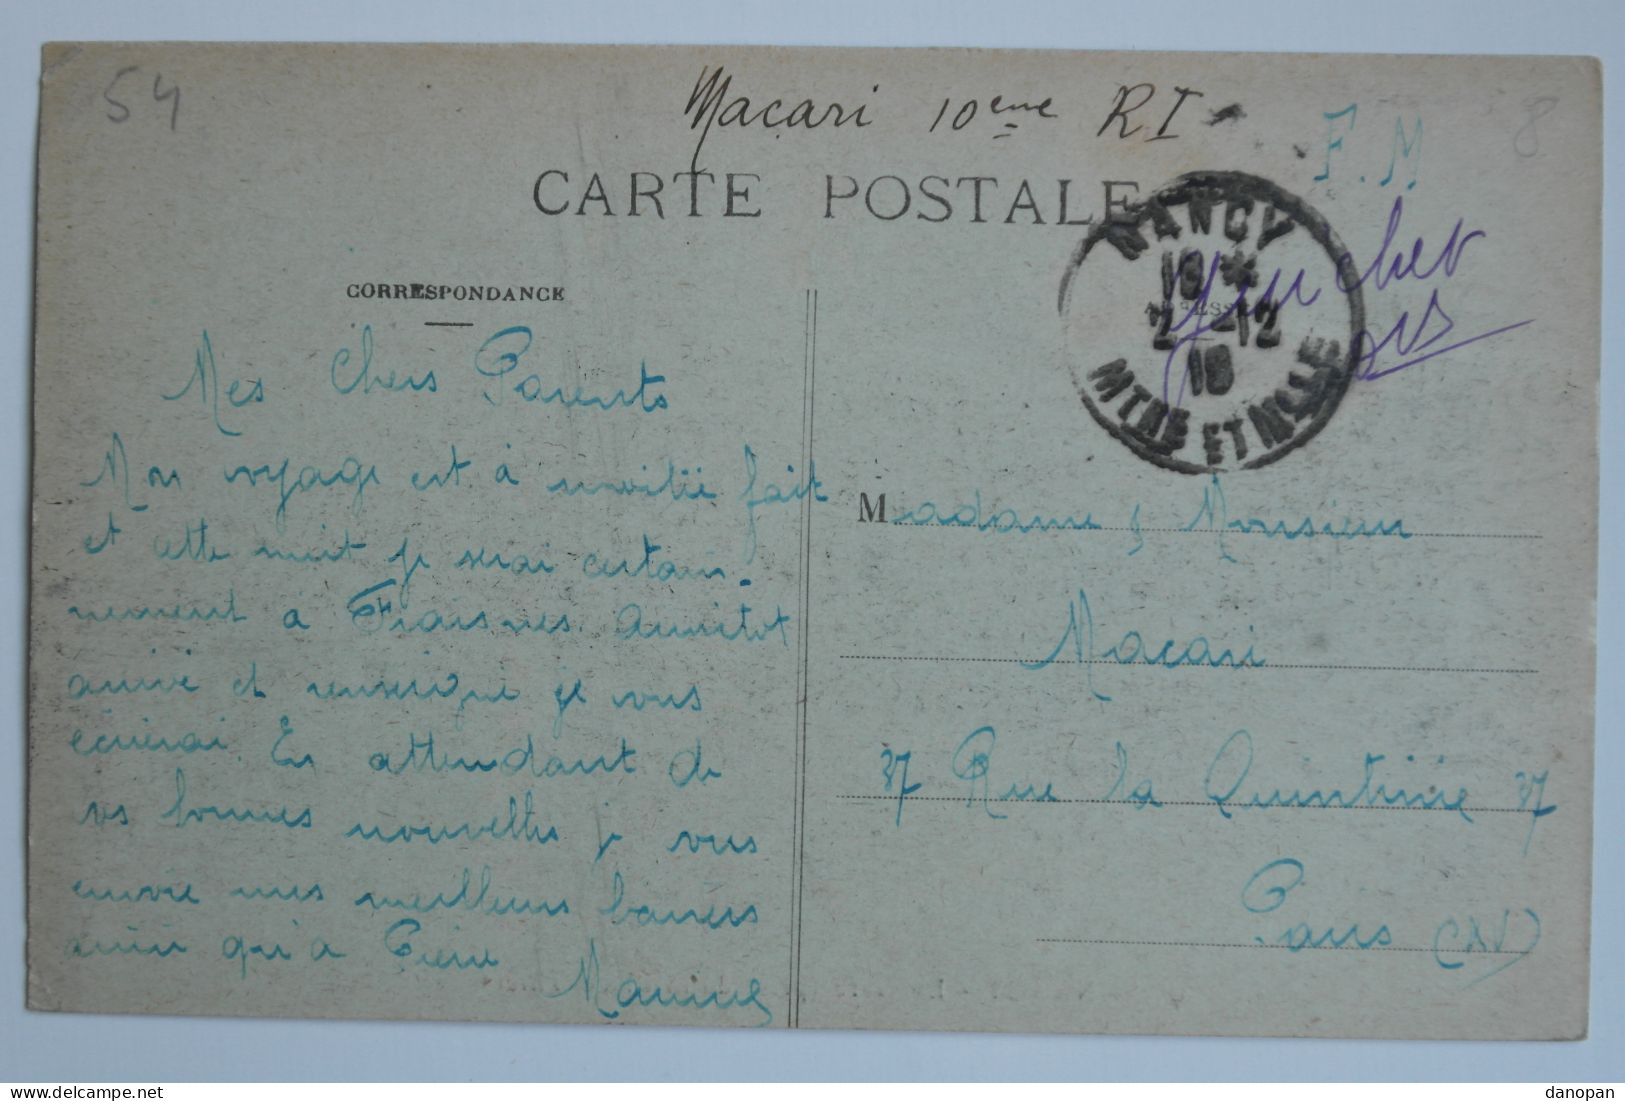 54
Macari 10eme RI
F.M
8
CARTE POSTALE
NANCY
18 *
2 - 12
18
MTHE ET MLLE
CORRESPONDANCE
Mes Chers Parents
Mon voyage est à moitié fait
et cette nuit je serai certain-
nement à Fraisnes. Aussitot
arrivé et renseigné je vous
écrirai. En attendant de
vos bonnes nouvelles je vous
envoie mes meilleurs baisers
ainsi qu'a Pierre
Maurice
Madame & Monsieur
Macari
37 Rue la Quintinie 37
Paris (XV)
delcampe.net
danopan